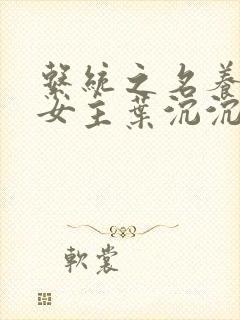 系統之名養
女主葉沉沉
軟裳